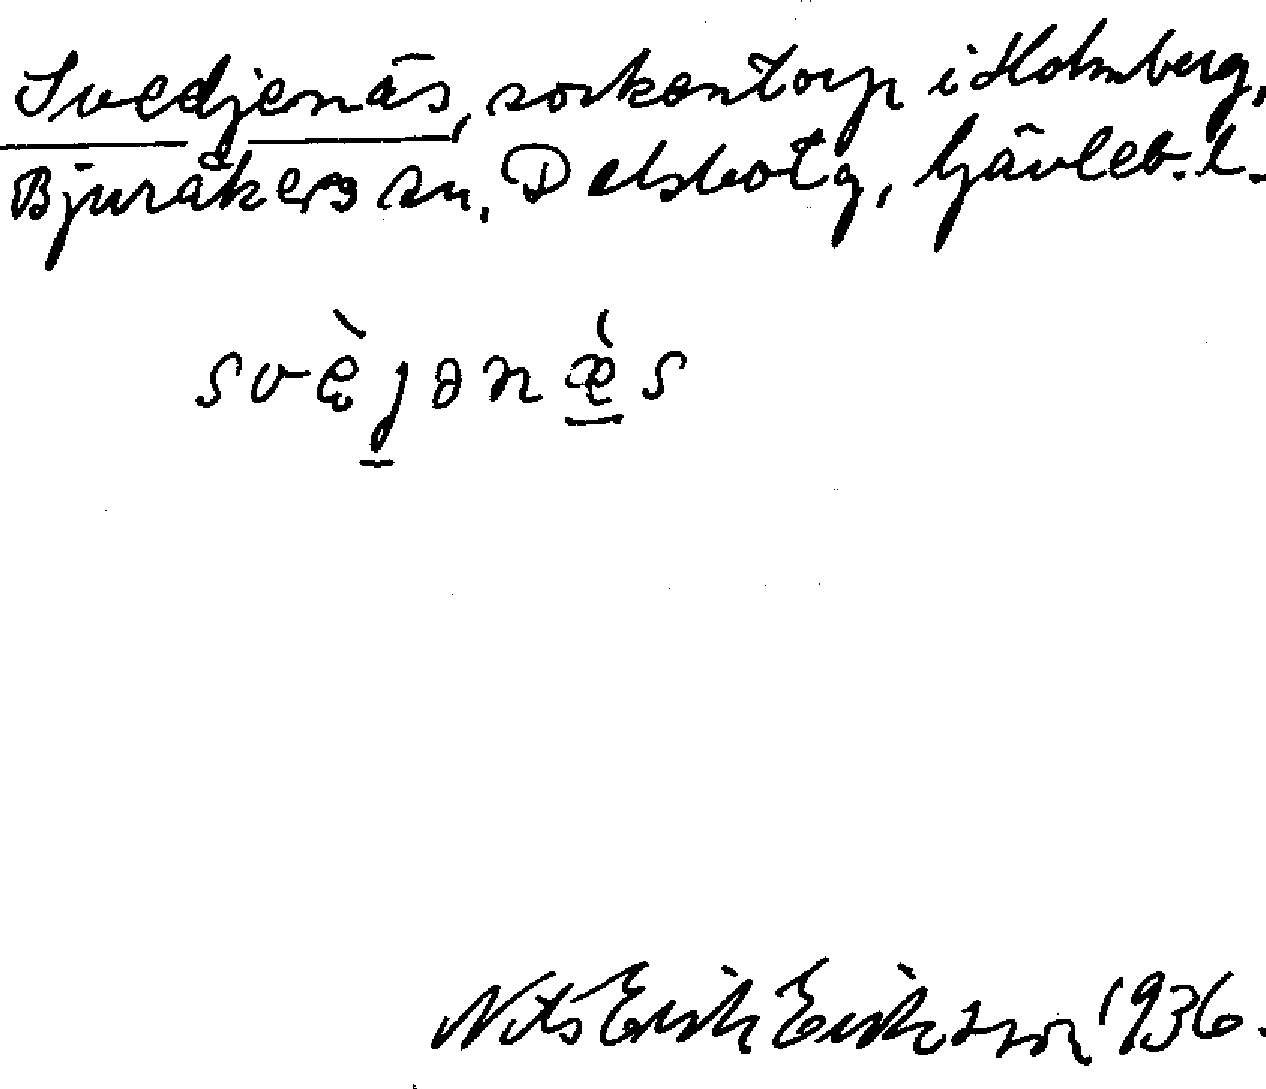 Svedjenäs, sockentorp i Holmberg,
Bjuråkers sn, Delsbo tg, Gävleb. l.
svè̜jənæ̀s
Nils Erik Eriksson 1936.